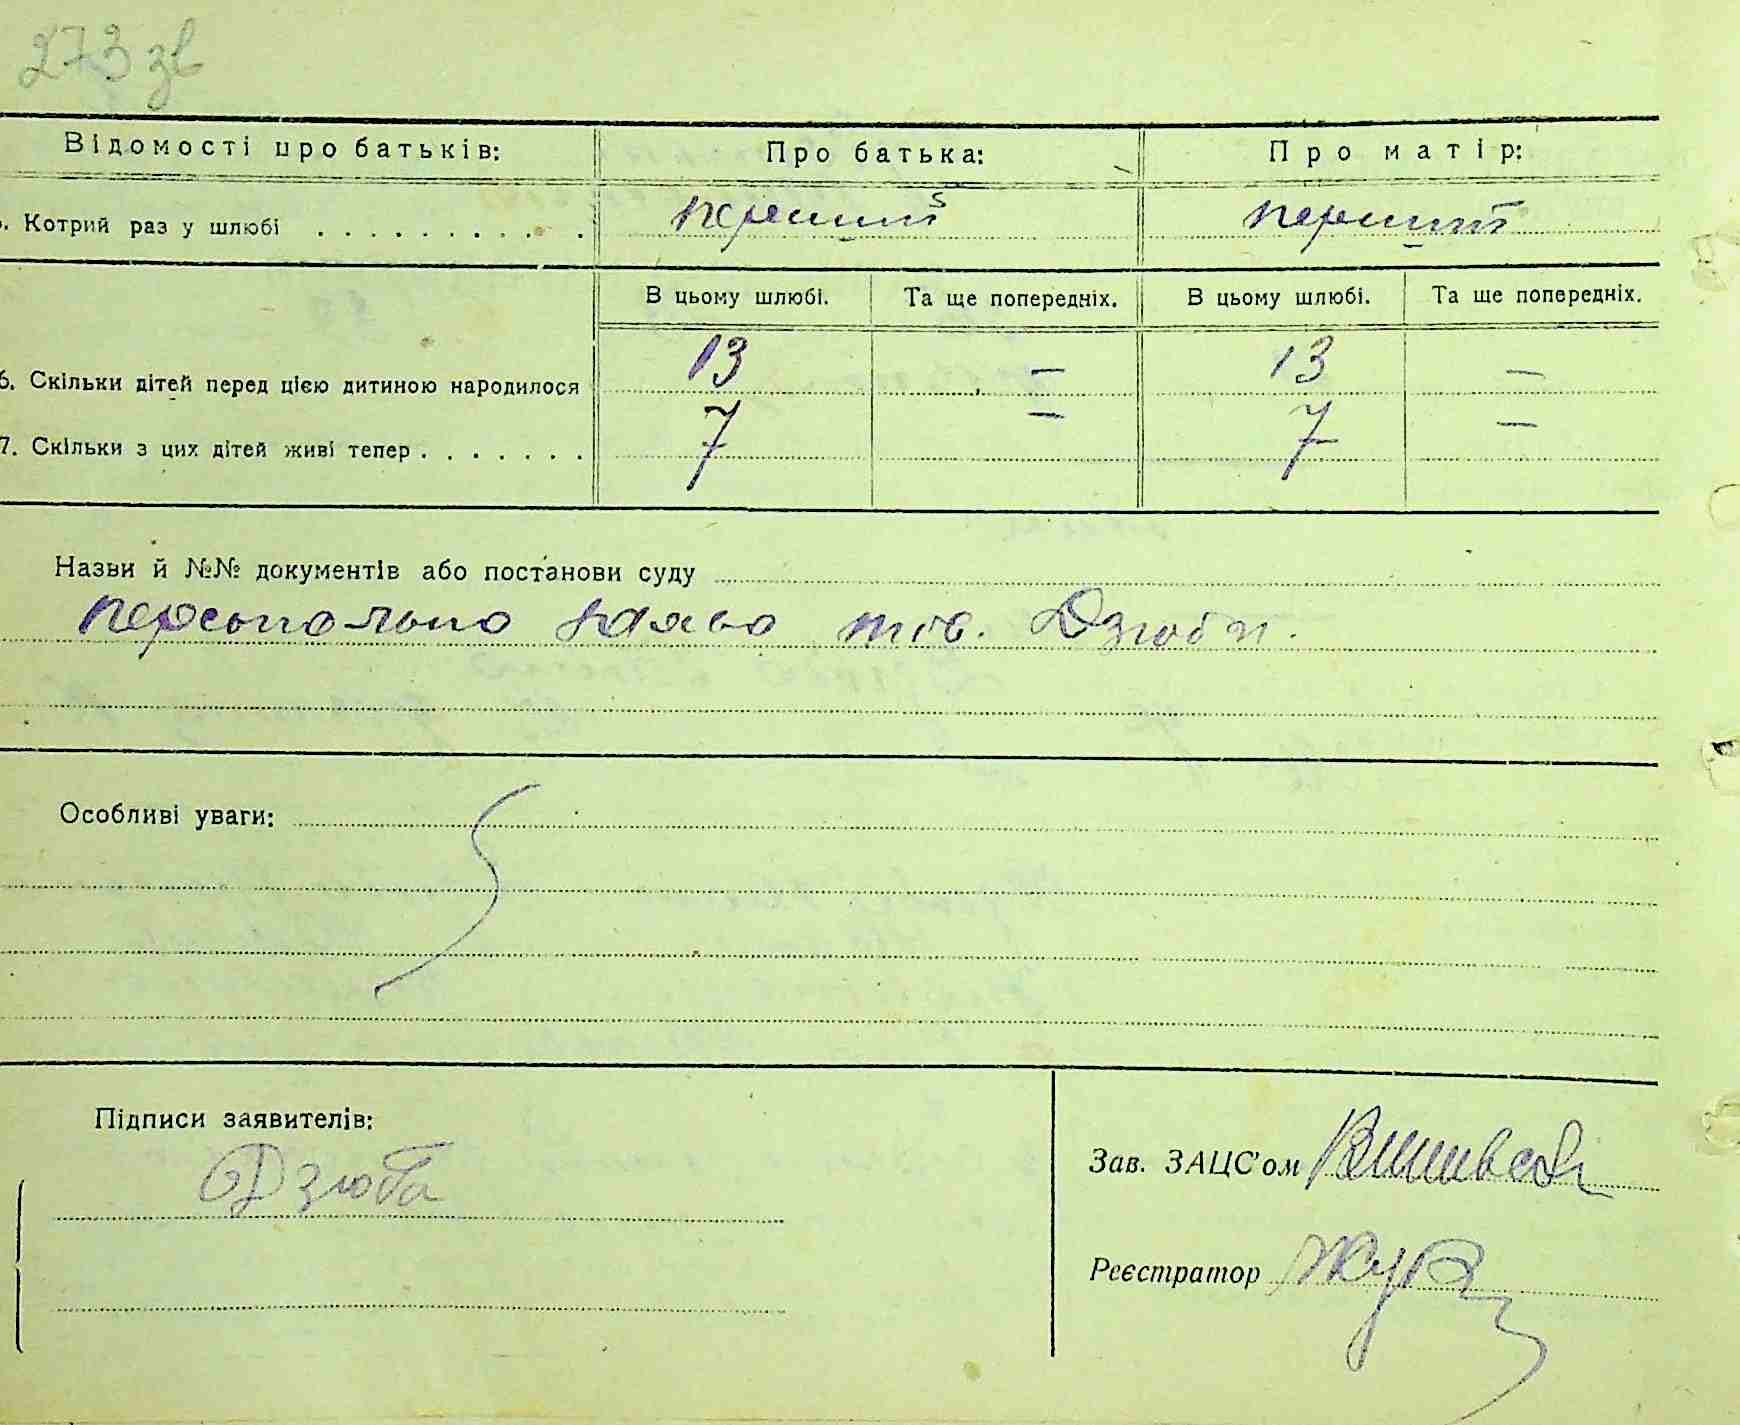 273 зв
Відомості про батьків: Про батька: Про матір:
5. Котрий раз у шлюбі перший перший
В цьому шлюбі. Та ще попередніх. В цьому шлюбі. Та ще попередніх.
6. Скільки дітей перед цією дитиною народилося 13 — 13 —
7. Скільки з цих дітей живі тепер 7 — 7 —
Назви й №№ документів або постанови суду
персонально заява тов. Дзюби.
Особливі уваги:
Підписи заявителів:
Дзюба
Зав. ЗАЦС'ом
Реєстратор